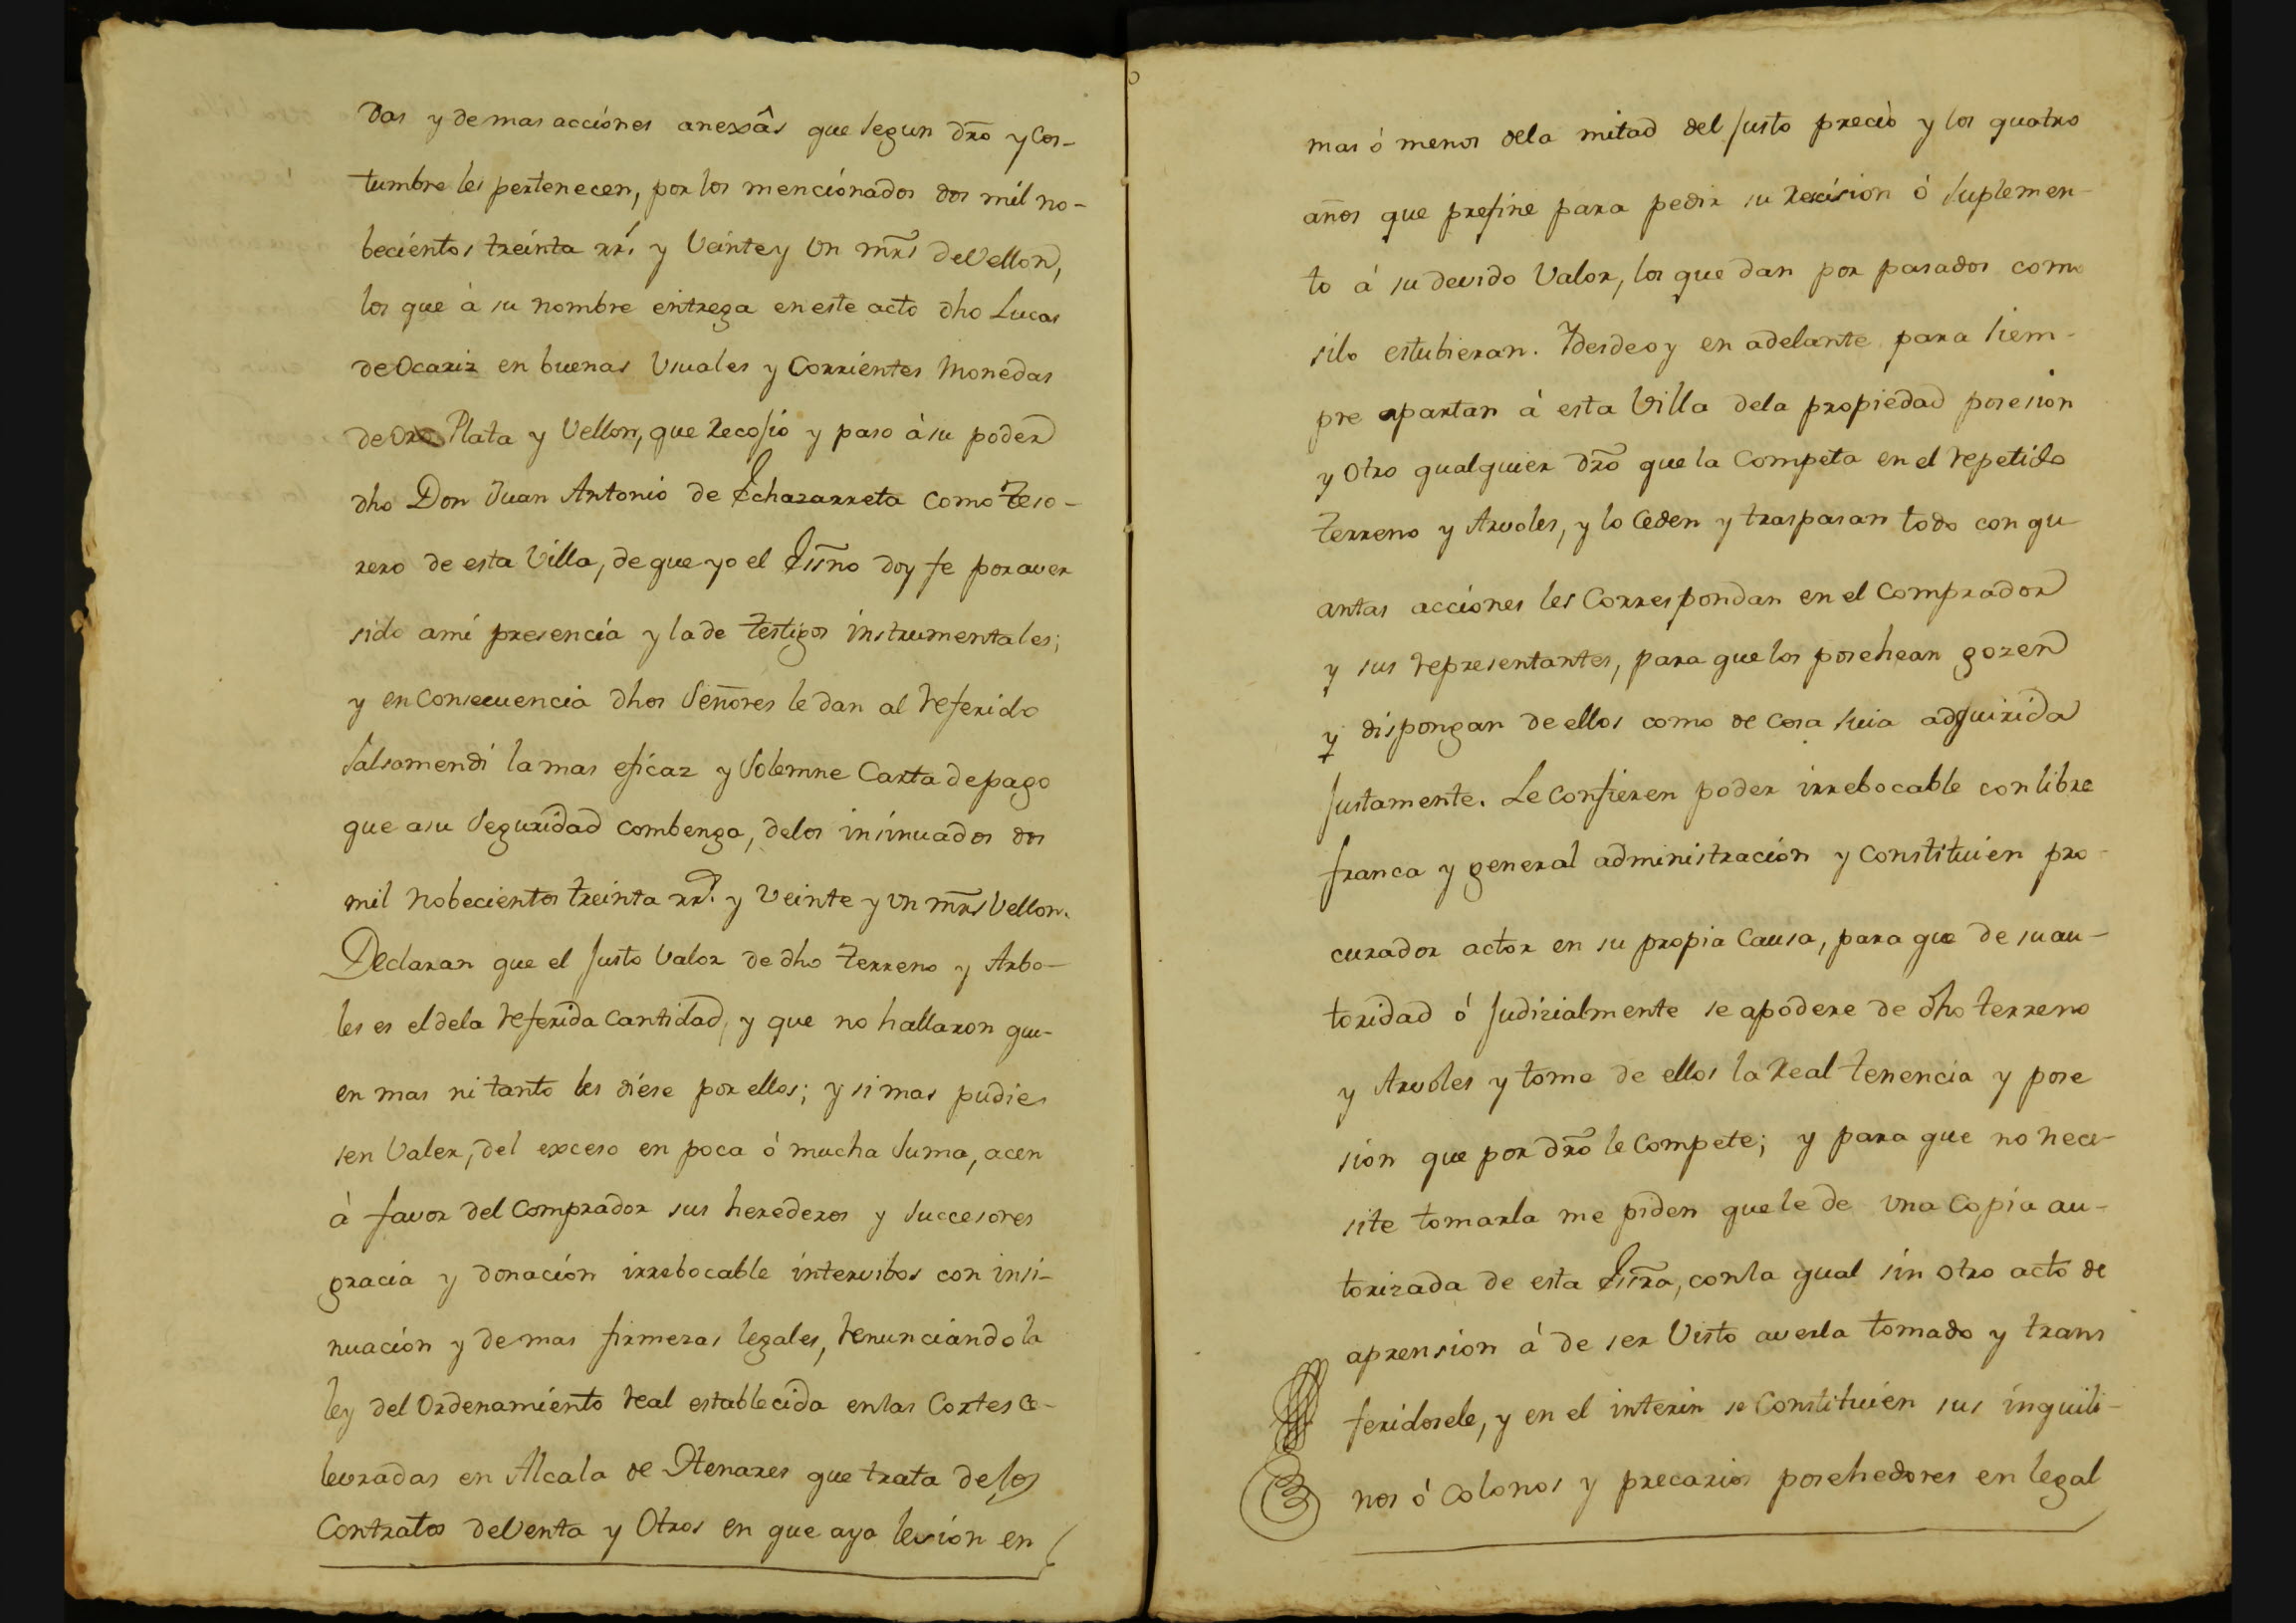 das y demas acciónes anexâs que segun dr̃o y Cos-
tumbre les pertenecen, por los menciónados dos mil no-
beciéntos treinta rr.s y Veinte y Un mr̃s de Vellon,
los que à su nombre entrega en este acto dho Lucas
de Ocariz en buenas Usuales y Corriéntes Monedas
de Oro Plata y Vellon, que Recojió y paso à su poder
dho Don Juan Antonio de Echazarreta como Teso-
rero de esta Villa, de que yo el Ess̃no doy fe por aver
sido ami presencia y la de Testigos instrumentales;
y en Consecuencia dhos Señores le dan al Referido
Salsamendi la mas eficaz y Solemne Carta de pago
que a su Seguridad combenga, delos insinuados dos
mil Nobecientos treinta rr.s y Veinte y Un mr̃s Vellon.
Declaran que el Justo Valor de dho Terreno y Arbo-
les es el dela Referida Cantidad, y que no hallaron qui-
en mas ni tanto les diese por ellos; y si mas pudie
sen Valer, del exceso en poca ó mucha Suma, acen
à favor del Comprador sus herederos y Succesores
gracia y donación irrebocable intervibos con insi-
nuación y demas firmezas legales, Renunciando la
ley del Ordenamiénto Real establecida enlas Cortes Ce-
levradas en Alcala de Henares que trata de los
Contratos de Venta y Otros en que aya lesión en
mas ó menos dela mitad del Justo precio y los quatro
años que prefine para pedir su Recision ó Suplemen-
to á su devido Valor, los que dan por pasados como
silo estubieran. Y desde oy en adelante para Siem-
pre apartan á esta Villa dela propiedad posesion
y Otro qualquier dr̃o que la Competa en el Repetido
Terreno y Arvoles, y lo Ceden y traspasan todo con qu-
antas acciones les Correspondan en el Comprador
y sus Representantes, para que los posehean gozen
y dispongan de ellos como de Cosa Suia adquirida
Justamente. Le Confieren poder irrebocable con libre
franca y general administración y Constituien pro-
curador actor en su propia Causa, para que de su au-
toridad ó Judizialmente se apodere de dho terreno
y Arvoles y tome de ellos la Real tenencia y pose
sión que por dr̃o le Compete; y para que no nece-
site tomarla me piden que le de Una Copia au-
torizada de esta Ess̃ra, con la qual sin Otro acto de
aprension á de ser Visto averla tomado y trans
feridosele, y en el interin se Constituién sus inquili-
nos ó Colonos y precarios posehedores en legal